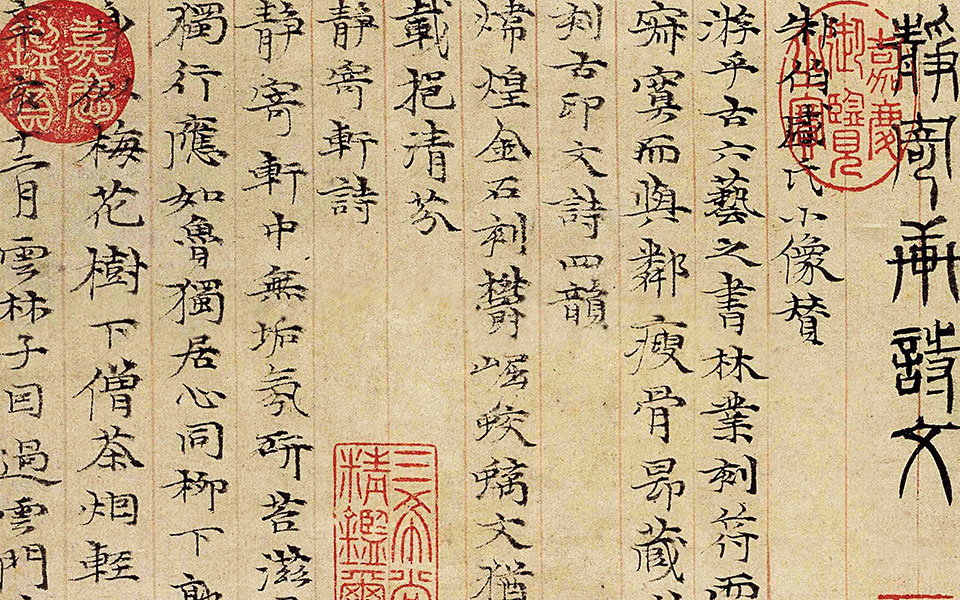 靜寄軒詩文
朱伯盛氏小像贊
游乎古六藝之書林業刻符而
寂寞而與鄰瘦骨昻藏
刻古印文詩四韻
煒煌金石刻鬱崛蛟螭文猶
載挹清芬
靜寄軒詩
靜寄軒中無垢氛研苔滋
獨行應如魯獨居心同柳下
梅花樹下僧茶烟輕
十二月雲林子因過雲門
嘉慶御覽之寶
三希堂精鑑璽
嘉慶鑑賞